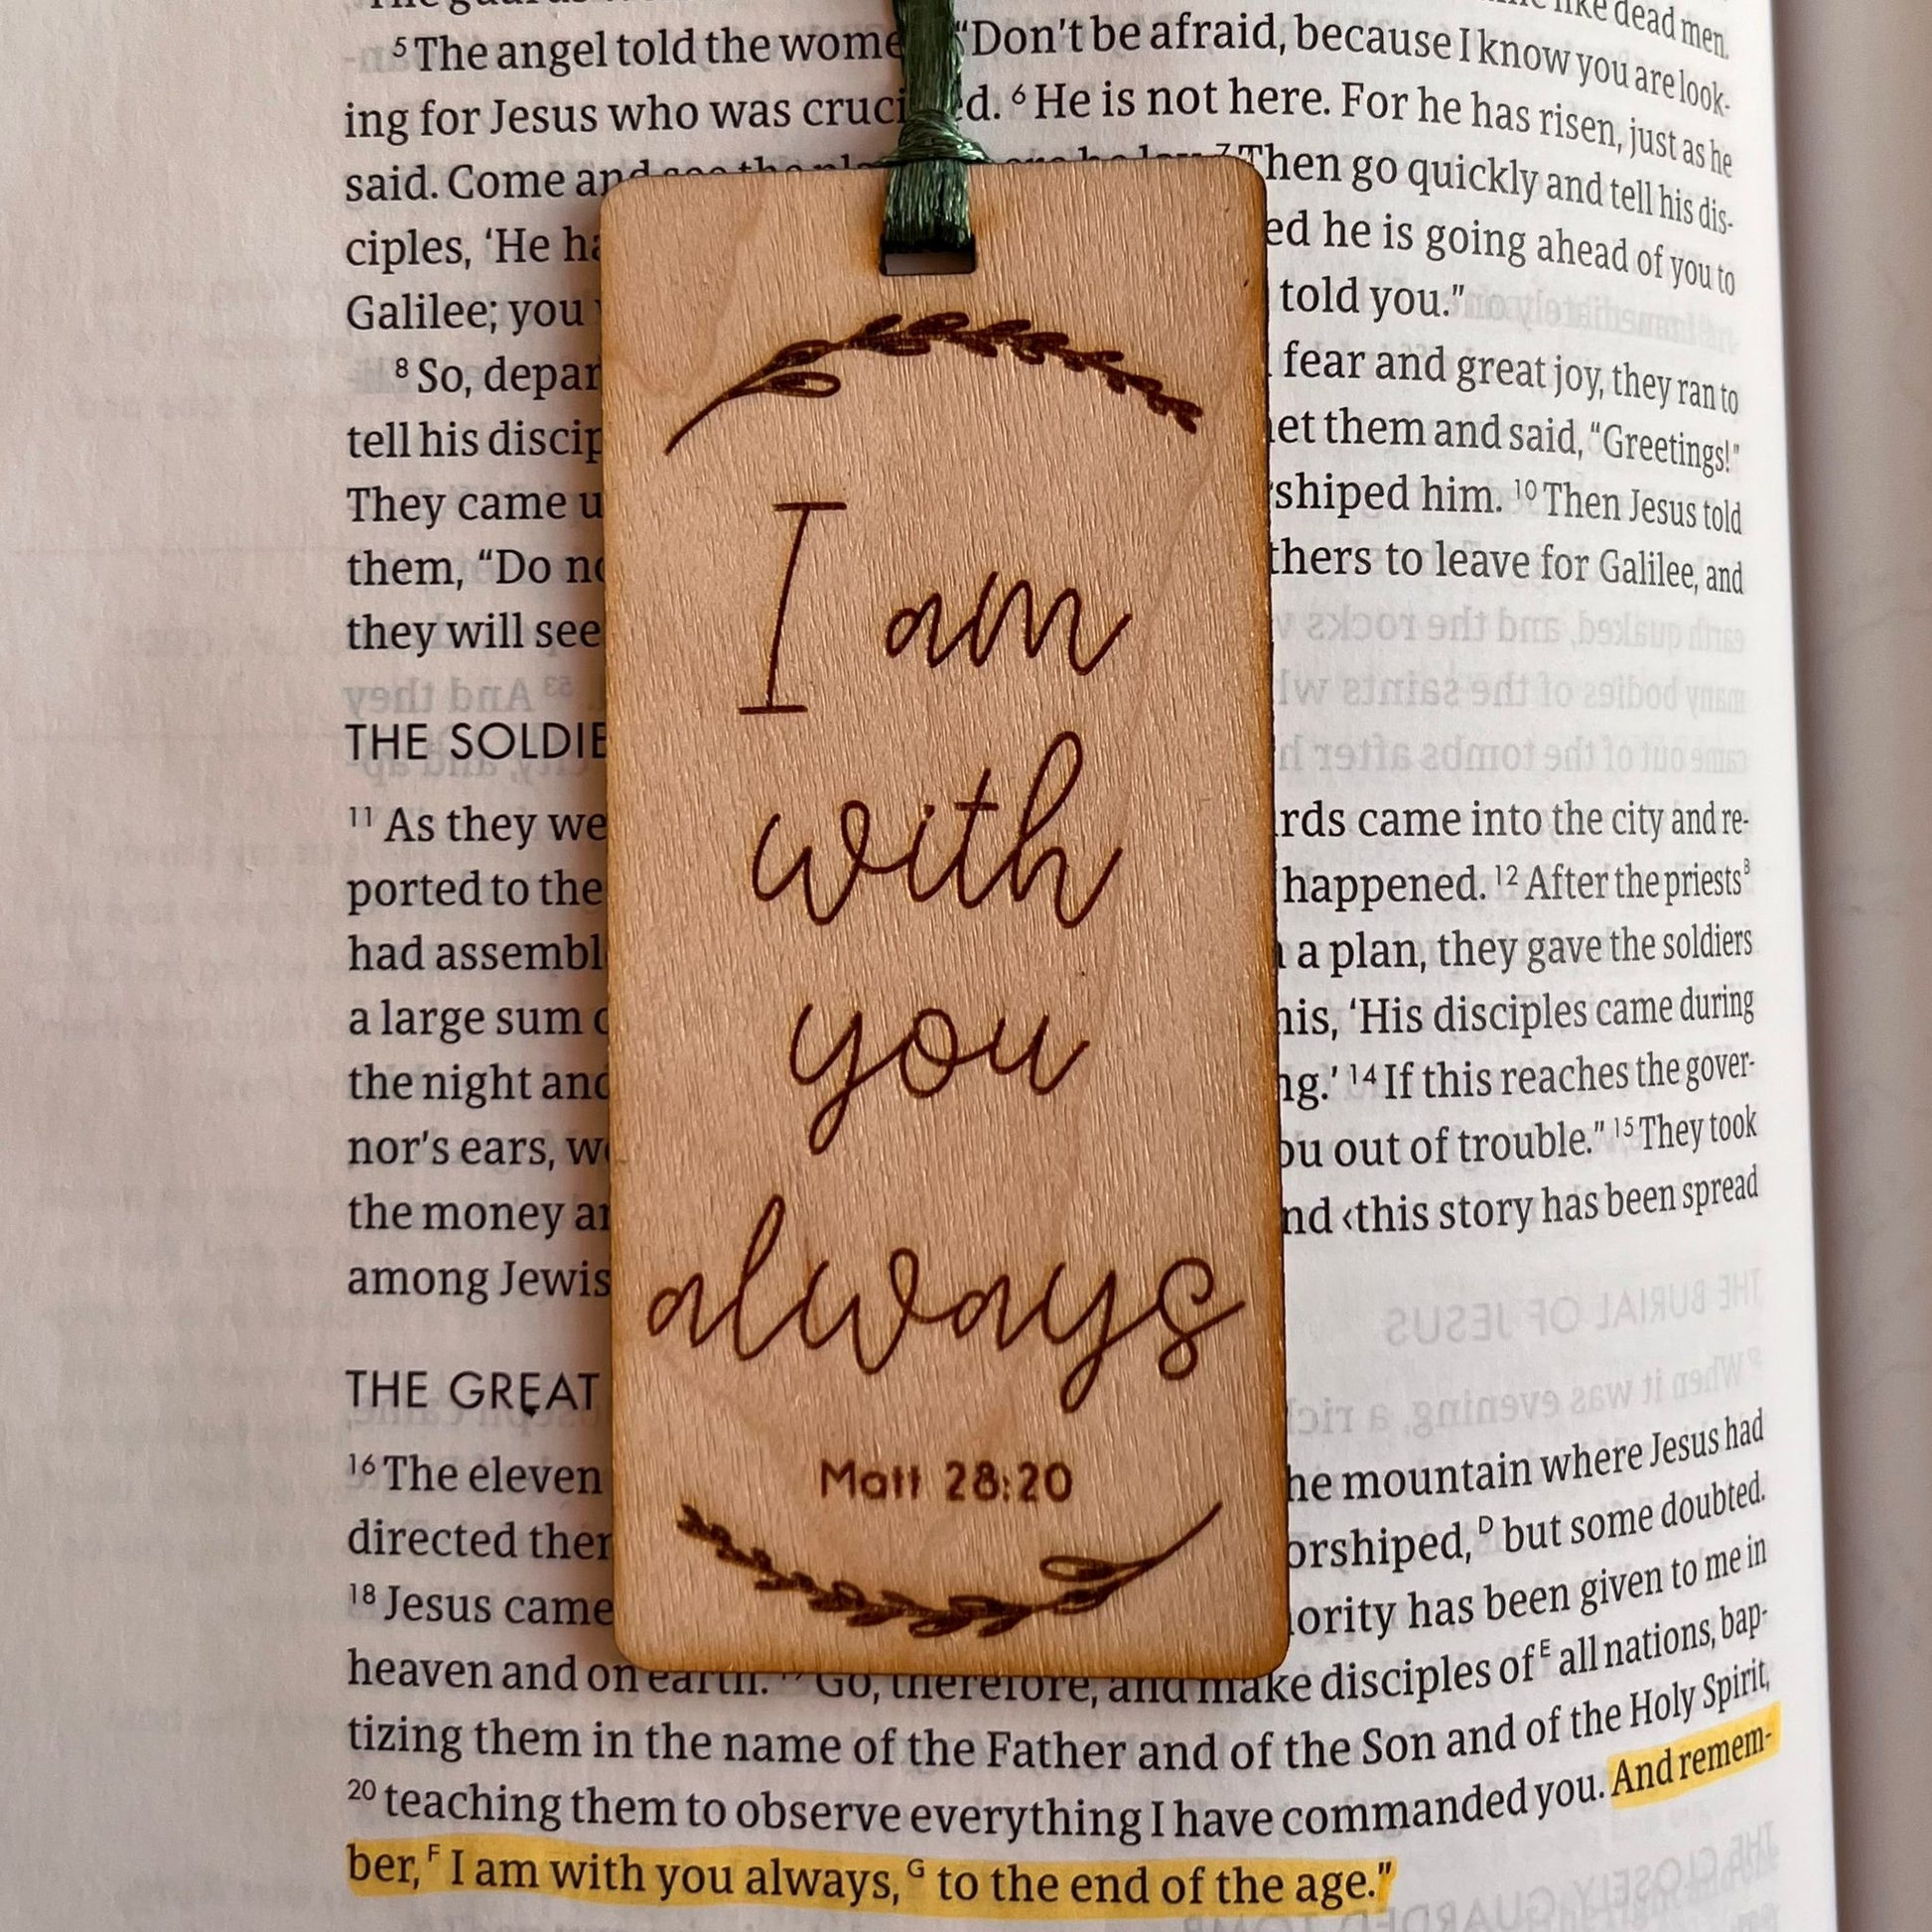 like dead men.
5 The angel told the "Don't be afraid, because I know you are look-
ing for Jesus who was 6 He is not here. For he has risen, just as he
said. Come 7 Then go quickly and tell his dis-
ciples, 'He he is going ahead of you to
Galilee; you told you."
8 So, fear and great joy, they ran to
tell his them and said, "Greetings!"
They came him. 10 Then Jesus told
them, "Do to leave for Galilee, and
they will see
THE
11 As they came into the city and re-
ported to the happened. 12 After the priests B
had a plan, they gave the soldiers
a large sum 'His disciples came during
the night 14 If this reaches the gover-
nor's ears, out of trouble." 15 They took
the money ‹this story has been spread
among
THE GREAT
16 The eleven mountain where Jesus had
directed D but some doubted.
18 Jesus came has been given to me in
heaven and on earth. Go, therefore, and make disciples of E all nations, bap-
tizing them in the name of the Father and of the Son and of the Holy Spirit,
20 teaching them to observe everything I have commanded you. And remem-
ber, F I am with you always, G to the end of the age."
I am
with
you
always
Matt 28:20